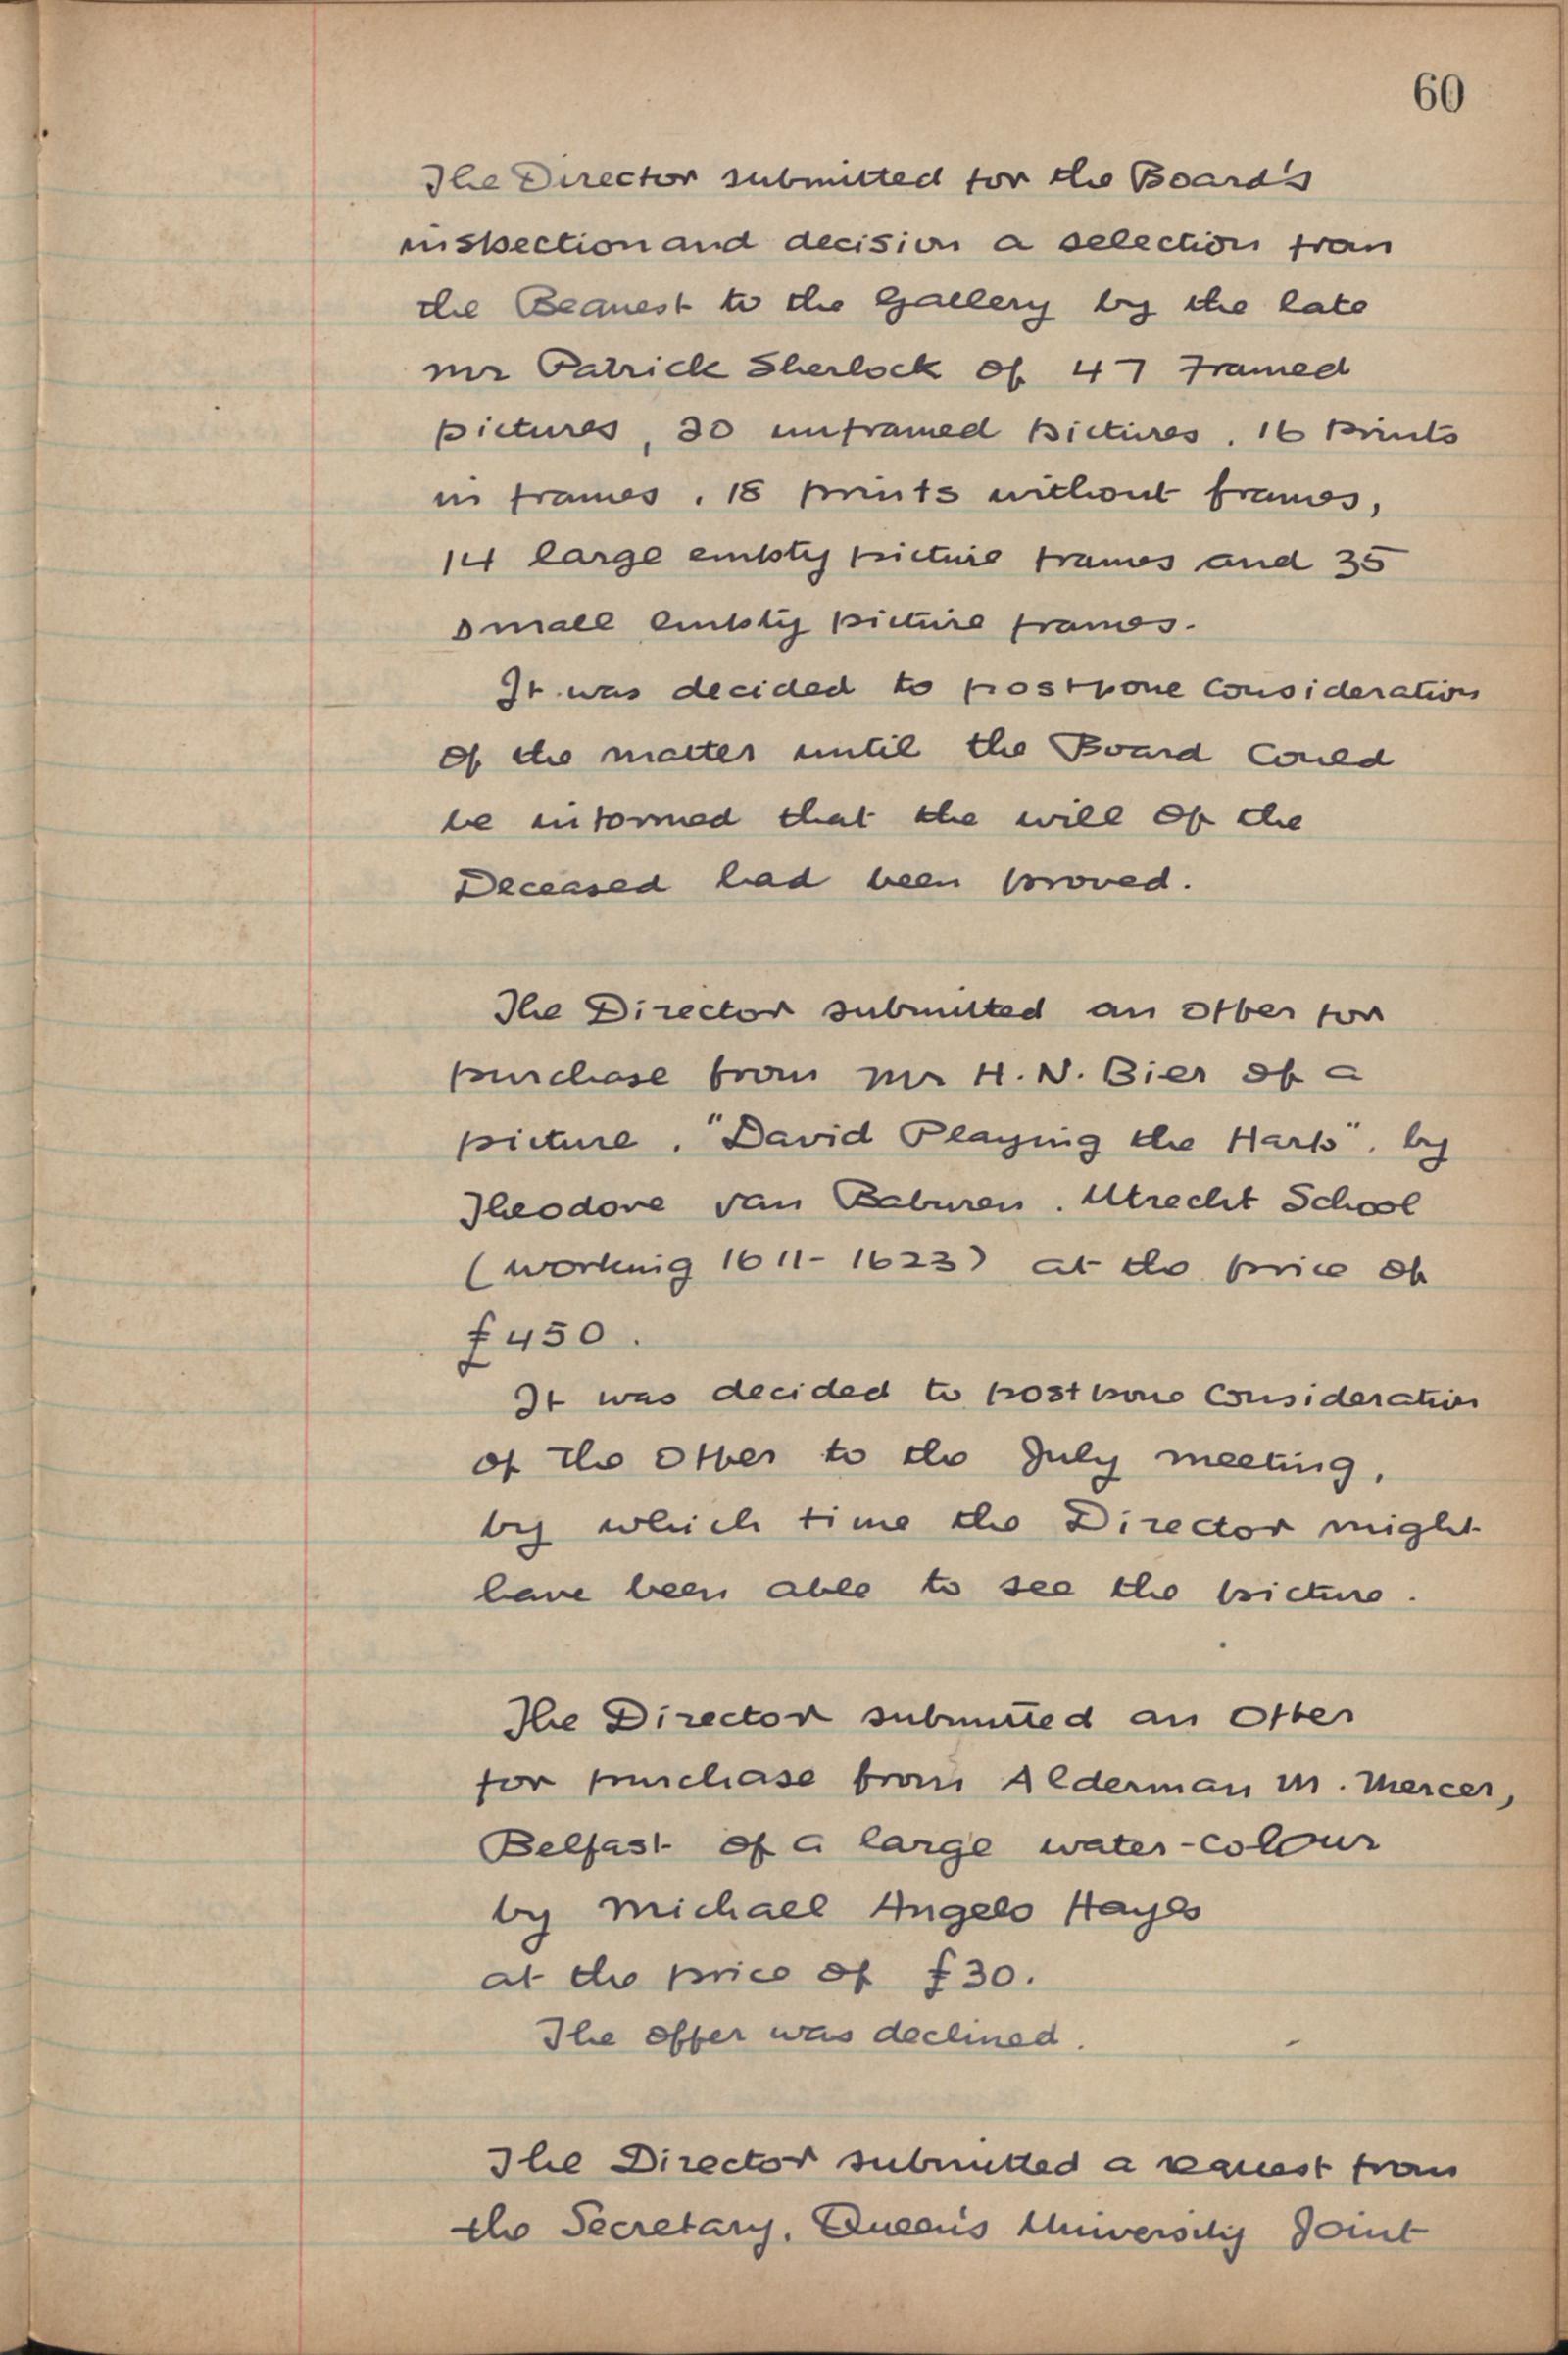 60
The Director submitted for the Board's
inspection and decision a selection from
the Bequest to the Gallery by the late
Mr Patrick Sherlock of 47 Framed
pictures, 20 unframed pictures, 16 prints
in frames, 18 prints without frames,
14 large empty picture frames and 35
small empty picture frames.
It was decided to postpone consideration
of the matter until the Board could
be informed that the will of the
Deceased had been proved.
The Director submitted an offer for
purchase from Mr H. N. Bier of a
picture, "David Playing the Harp", by
Theodore van Baburen, Utrecht School
(working 1611-1623) at the price of
£450.
It was decided to postpone consideration
of the offer to the July meeting,
by which time the Director might
have been able to see the picture.
The Director submitted an offer
for purchase from Alderman M. Mercer,
Belfast of a large water-colour
by Michael Angelo Hayes
at the price of £30.
The offer was declined.
The Director submitted a request from
the Secretary, Queen's University Joint